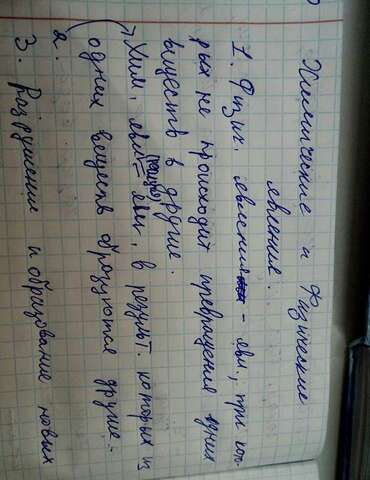 Химические и физические
явления.
1. Физич. явления - явл., при кот-
рых не происходит превращения одних
веществ в другие.
Хим. явл = явл, в результ. которых из
(реакции)
одних веществ образуются другие -
2.
3. Разрушение и образование новых